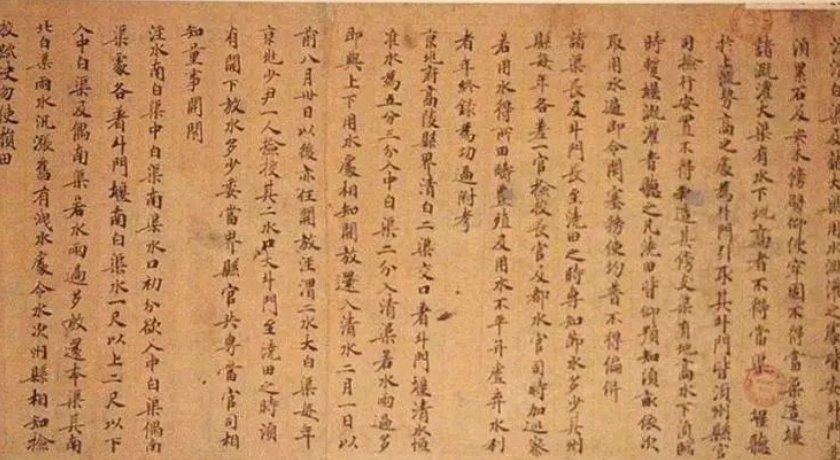 用溉灌之處皆安斗門
須累石及安木傍壁仰使牢固不得當渠造堰
諸溉灌大渠有水下地高者不得當渠 堰聽
於上流勢高之處為斗門引取其斗門皆須州縣官
司檢行安置不得私造其傍支渠有地高水下須臨
時暫堰溉灌者聽之凡澆田皆仰預知頃畝依次
取用水遍即令閉塞務使均普不得偏併
諸渠長及斗門長至澆田之時專知節水多少其州
縣每年各差一官檢校長官及都水官司時加巡察
若用水得所田疇豐殖及用水不平并虛弃水利
者年終錄為功過附考
京兆府高陵縣界清白二渠交口著斗門堰清水恒
准水為五分三分入中白渠二分入清渠若水雨過多
即與上下用水處相知開放還入清水二月一日以
前八月卅日以後亦任開放涇渭二水大白渠每年
京兆少尹一人檢校其二水口大斗門至澆田之時須
有開下放水多少委當界縣官共專當官司相
知量事開閉
涇水南白渠中白渠南渠水口初分欲入中白渠偶南
渠處各著斗門堰南白渠水一尺以上二尺以下
入中白渠及偶南渠若水雨過多放還本渠其南
北白渠雨水汎漲舊有洩水處令水次州縣相知檢
校疏決勿使損田